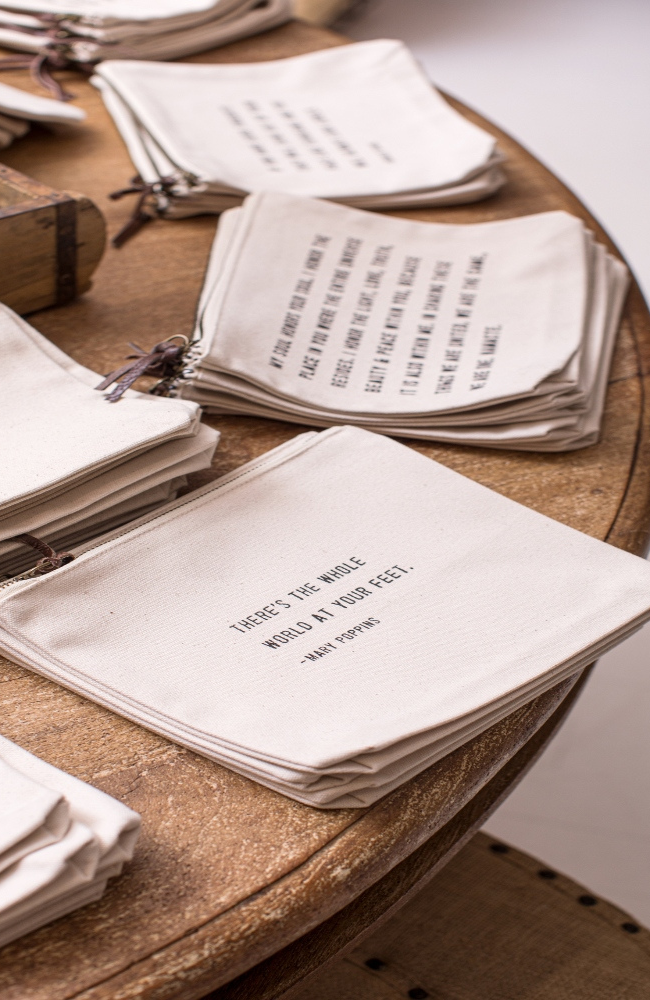 MY SOUL HONORS YOUR SOUL. I HONOR THE
PLACE IN YOU WHERE THE ENTIRE UNIVERSE
RESIDES. I HONOR THE LIGHT, LOVE, TRUTH,
BEAUTY & PEACE WITHIN YOU, BECAUSE
IT IS ALSO WITHIN ME. IN SHARING THESE
THINGS WE ARE UNITED, WE ARE THE SAME,
WE ARE ONE. NAMASTE.
THERE'S THE WHOLE
WORLD AT YOUR FEET.
-MARY POPPINS